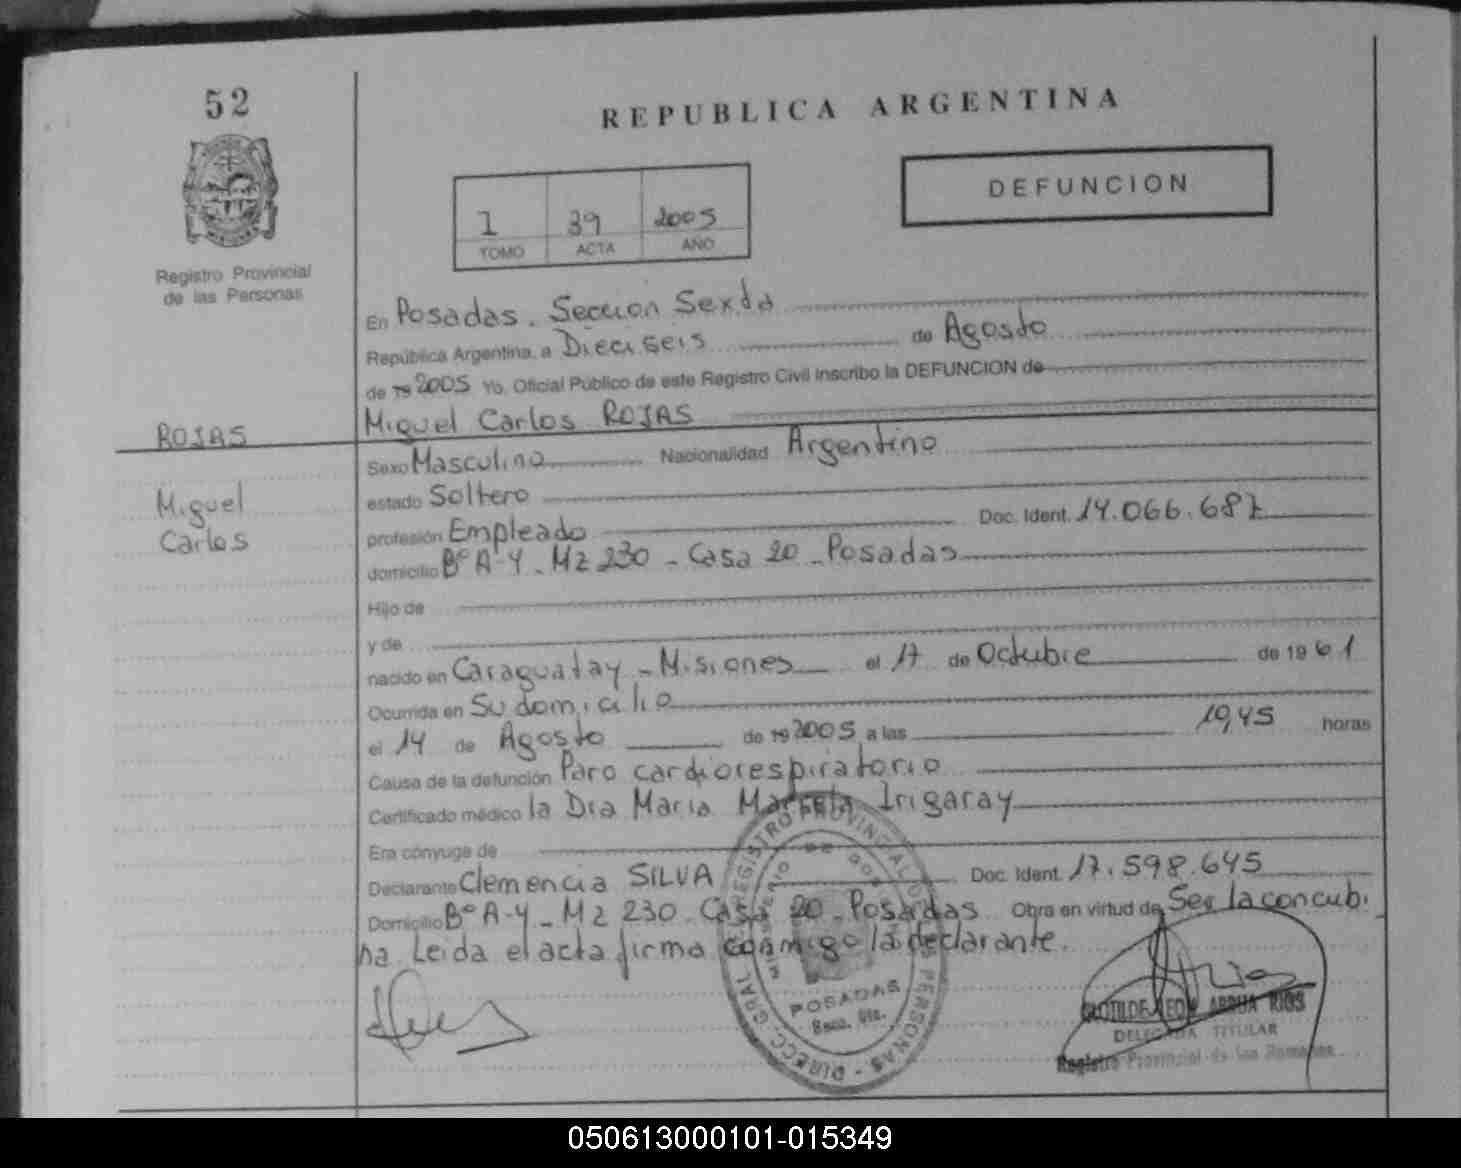 52
REPUBLICA ARGENTINA
DEFUNCION
1 39 2005
TOMO ACTA AÑO
Registro Provincial
de las Personas
En Posadas. Seccion Sexta
República Argentina, a Dieciseis de Agosto
de 19 2005 Yo, Oficial Público de este Registro Civil inscribo la DEFUNCION de
Miguel Carlos ROJAS
ROJAS
Miguel
Carlos
Sexo Masculino Nacionalidad Argentino
estado Soltero
profesión Empleado Doc. Ident. 14.066.687
domicilio Bº A-4 - Mz 230 - Casa 20 - Posadas
Hijo de
y de
nacido en Caraguatay - Misiones el 17 de Octubre de 19 61
Ocurrida en Su domicilio
el 14 de Agosto de 19 2005 a las 19,45 horas
Causa de la defunción Paro cardiorespiratorio
Certificado médico la Dra Maria Marcela Irigaray
Era cónyuge de
Declarante Clemencia SILVA Doc. Ident. 17.598.645
Domicilio Bº A-4 - Mz 230 - Casa 20 - Posadas Obra en virtud de Ser la concubi
na. Leida el acta firma conmigo la declarante.
DIRECC. GRAL. REGISTRO PROVINCIAL DE LAS PERSONAS
MINISTERIO DE GOB
POSADAS
Secc. 6ta.
CLOTILDE LEON ARRUA RIOS
DELEGADA TITULAR
Registro Provincial de las Personas
050613000101-015349